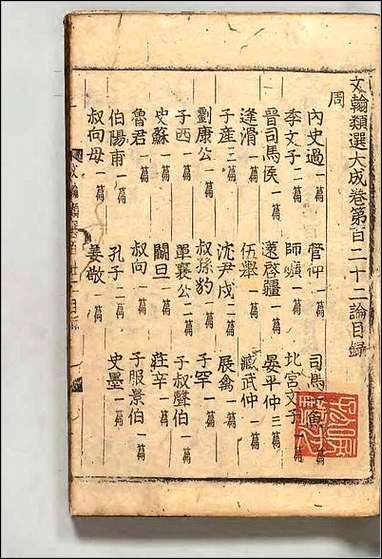 文翰類選大成卷第一百二十二論目録
周
內史過一篇 管仲一篇 司馬
李文子二篇 師曠一篇 北宮文子
晉司馬侯一篇 薳啓疆一篇 晏平仲三篇
逢滑一篇 伍舉一篇 臧武仲一篇
子產三篇 沈尹戌二篇 展禽一篇
劉康公一篇 叔孫豹一篇 子罕一篇
子西一篇 單襄公二篇 子叔聲伯一篇
史蘇一篇 鬬且一篇 莊辛一篇
魯君一篇 叔向一篇 子服景伯一篇
伯陽甫一篇 孔子二篇 史墨一篇
叔向母一篇 姜敬一篇